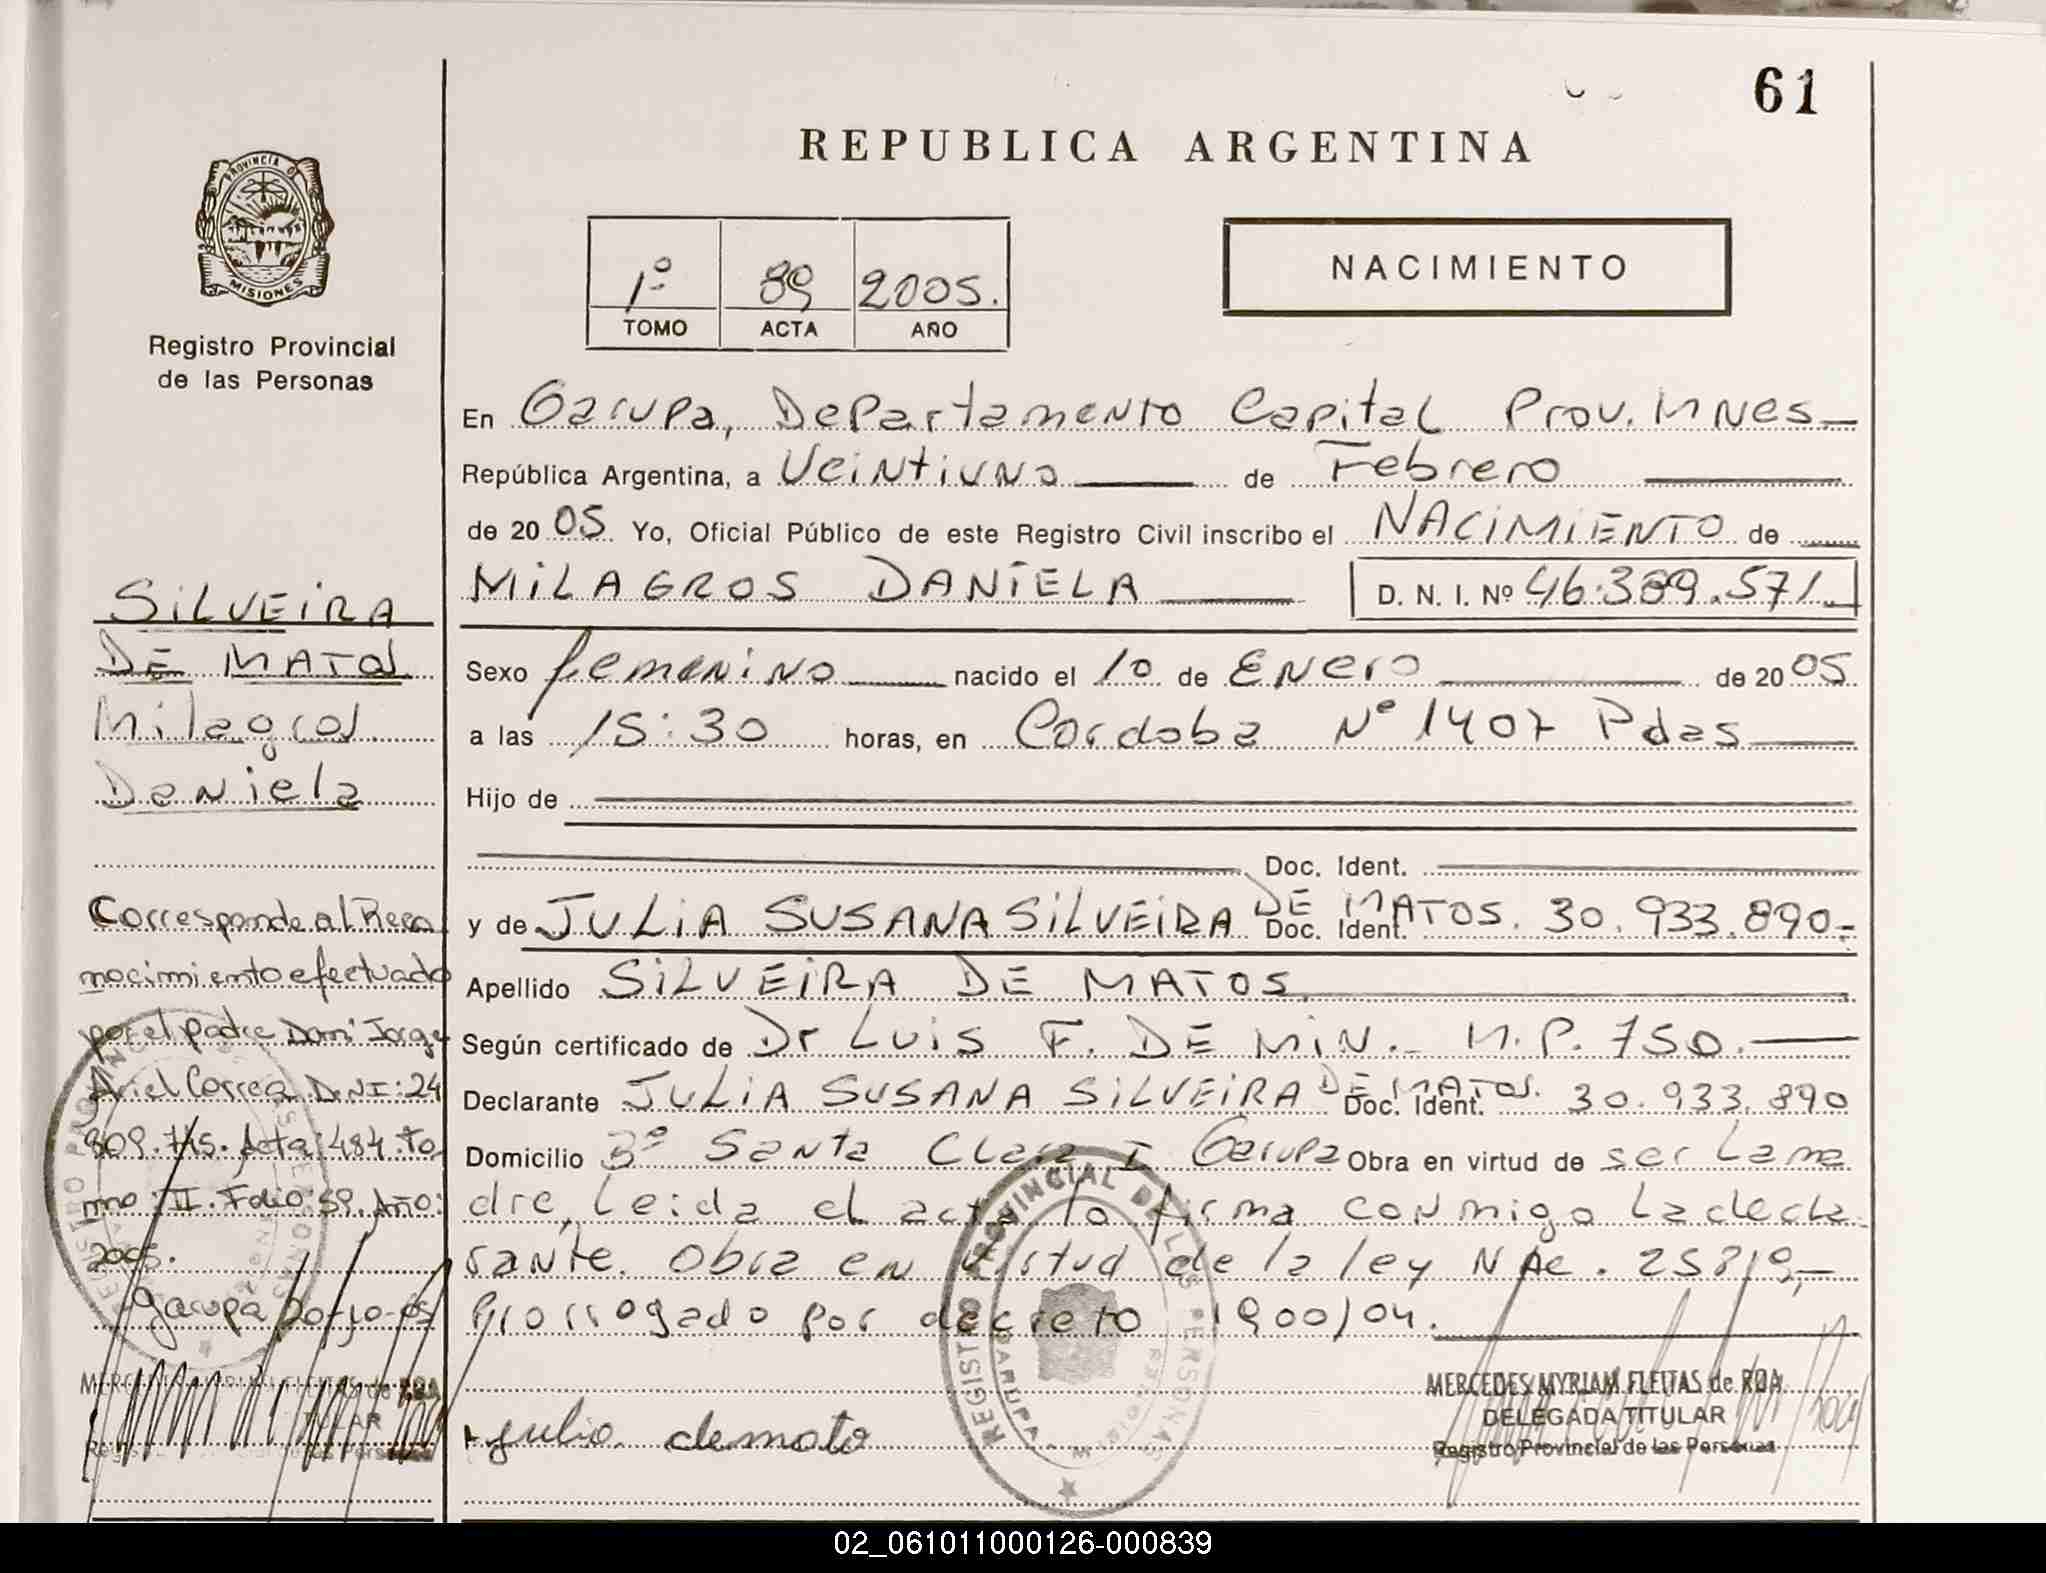 61
REPUBLICA ARGENTINA
PROVINCIA DE
MISIONES
Registro Provincial
de las Personas
1º 89 2005.
TOMO ACTA AÑO
NACIMIENTO
En Garupa, Departamento Capital Prov. MNes
República Argentina, a Veintiuno de Febrero
de 2005 Yo, Oficial Público de este Registro Civil inscribo el NACIMIENTO de
MILAGROS DANIELA D. N. I. Nº 46.389.571
Sexo femenino nacido el 10 de Enero de 2005
a las 15:30 horas, en Cordoba Nº 1407 Pdas
Hijo de
Doc. Ident.
y de JULIA SUSANA SILVEIRA DE MATOS. Doc. Ident. 30.933.890-
Apellido SILVEIRA DE MATOS
Según certificado de Dr LUIS F. DE MIN. M.P. 750.
Declarante JULIA SUSANA SILVEIRA DE MATOS. Doc. Ident. 30.933.890
Domicilio Bº Santa Clara I Garupa Obra en virtud de ser La ma
dre, Leida el acta la firma conmigo La decla
rante. Obra en virtud de la ley NAc. 25819,-
Prorrogado por decreto 1900/04.
julia demato
MERCEDES MYRIAM FLEITAS de ROA
DELEGADA TITULAR
Registro Provincial de las Personas
REGISTRO PROVINCIAL DE LAS PERSONAS
GARUPA
SILVEIRA
DE MATOS
Milagros
Daniela
Corresponde al Reco
nocimiento efectuado
por el padre Dani Jorge
Ariel Correa D.N.I: 24
809.715. Acta: 484. To
mo: II. Folio: 59. Año:
2005.
Garupa 20-10-05
MERCEDES MYRIAM FLEITAS de ROA
TITULAR
02_061011000126-000839